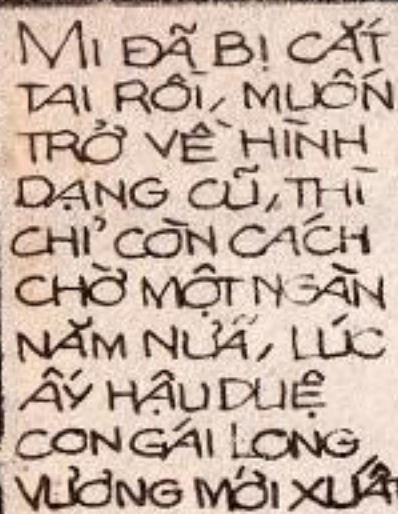 MI ĐÃ BỊ CẮT
TAI RỒI, MUỐN
TRỞ VỀ HÌNH
DẠNG CŨ, THÌ
CHỈ CÒN CÁCH
CHỜ MỘT NGÀN
NĂM NỮA, LÚC
ẤY HẬU DUỆ
CON GÁI LONG
VƯƠNG MỚI XUẤT